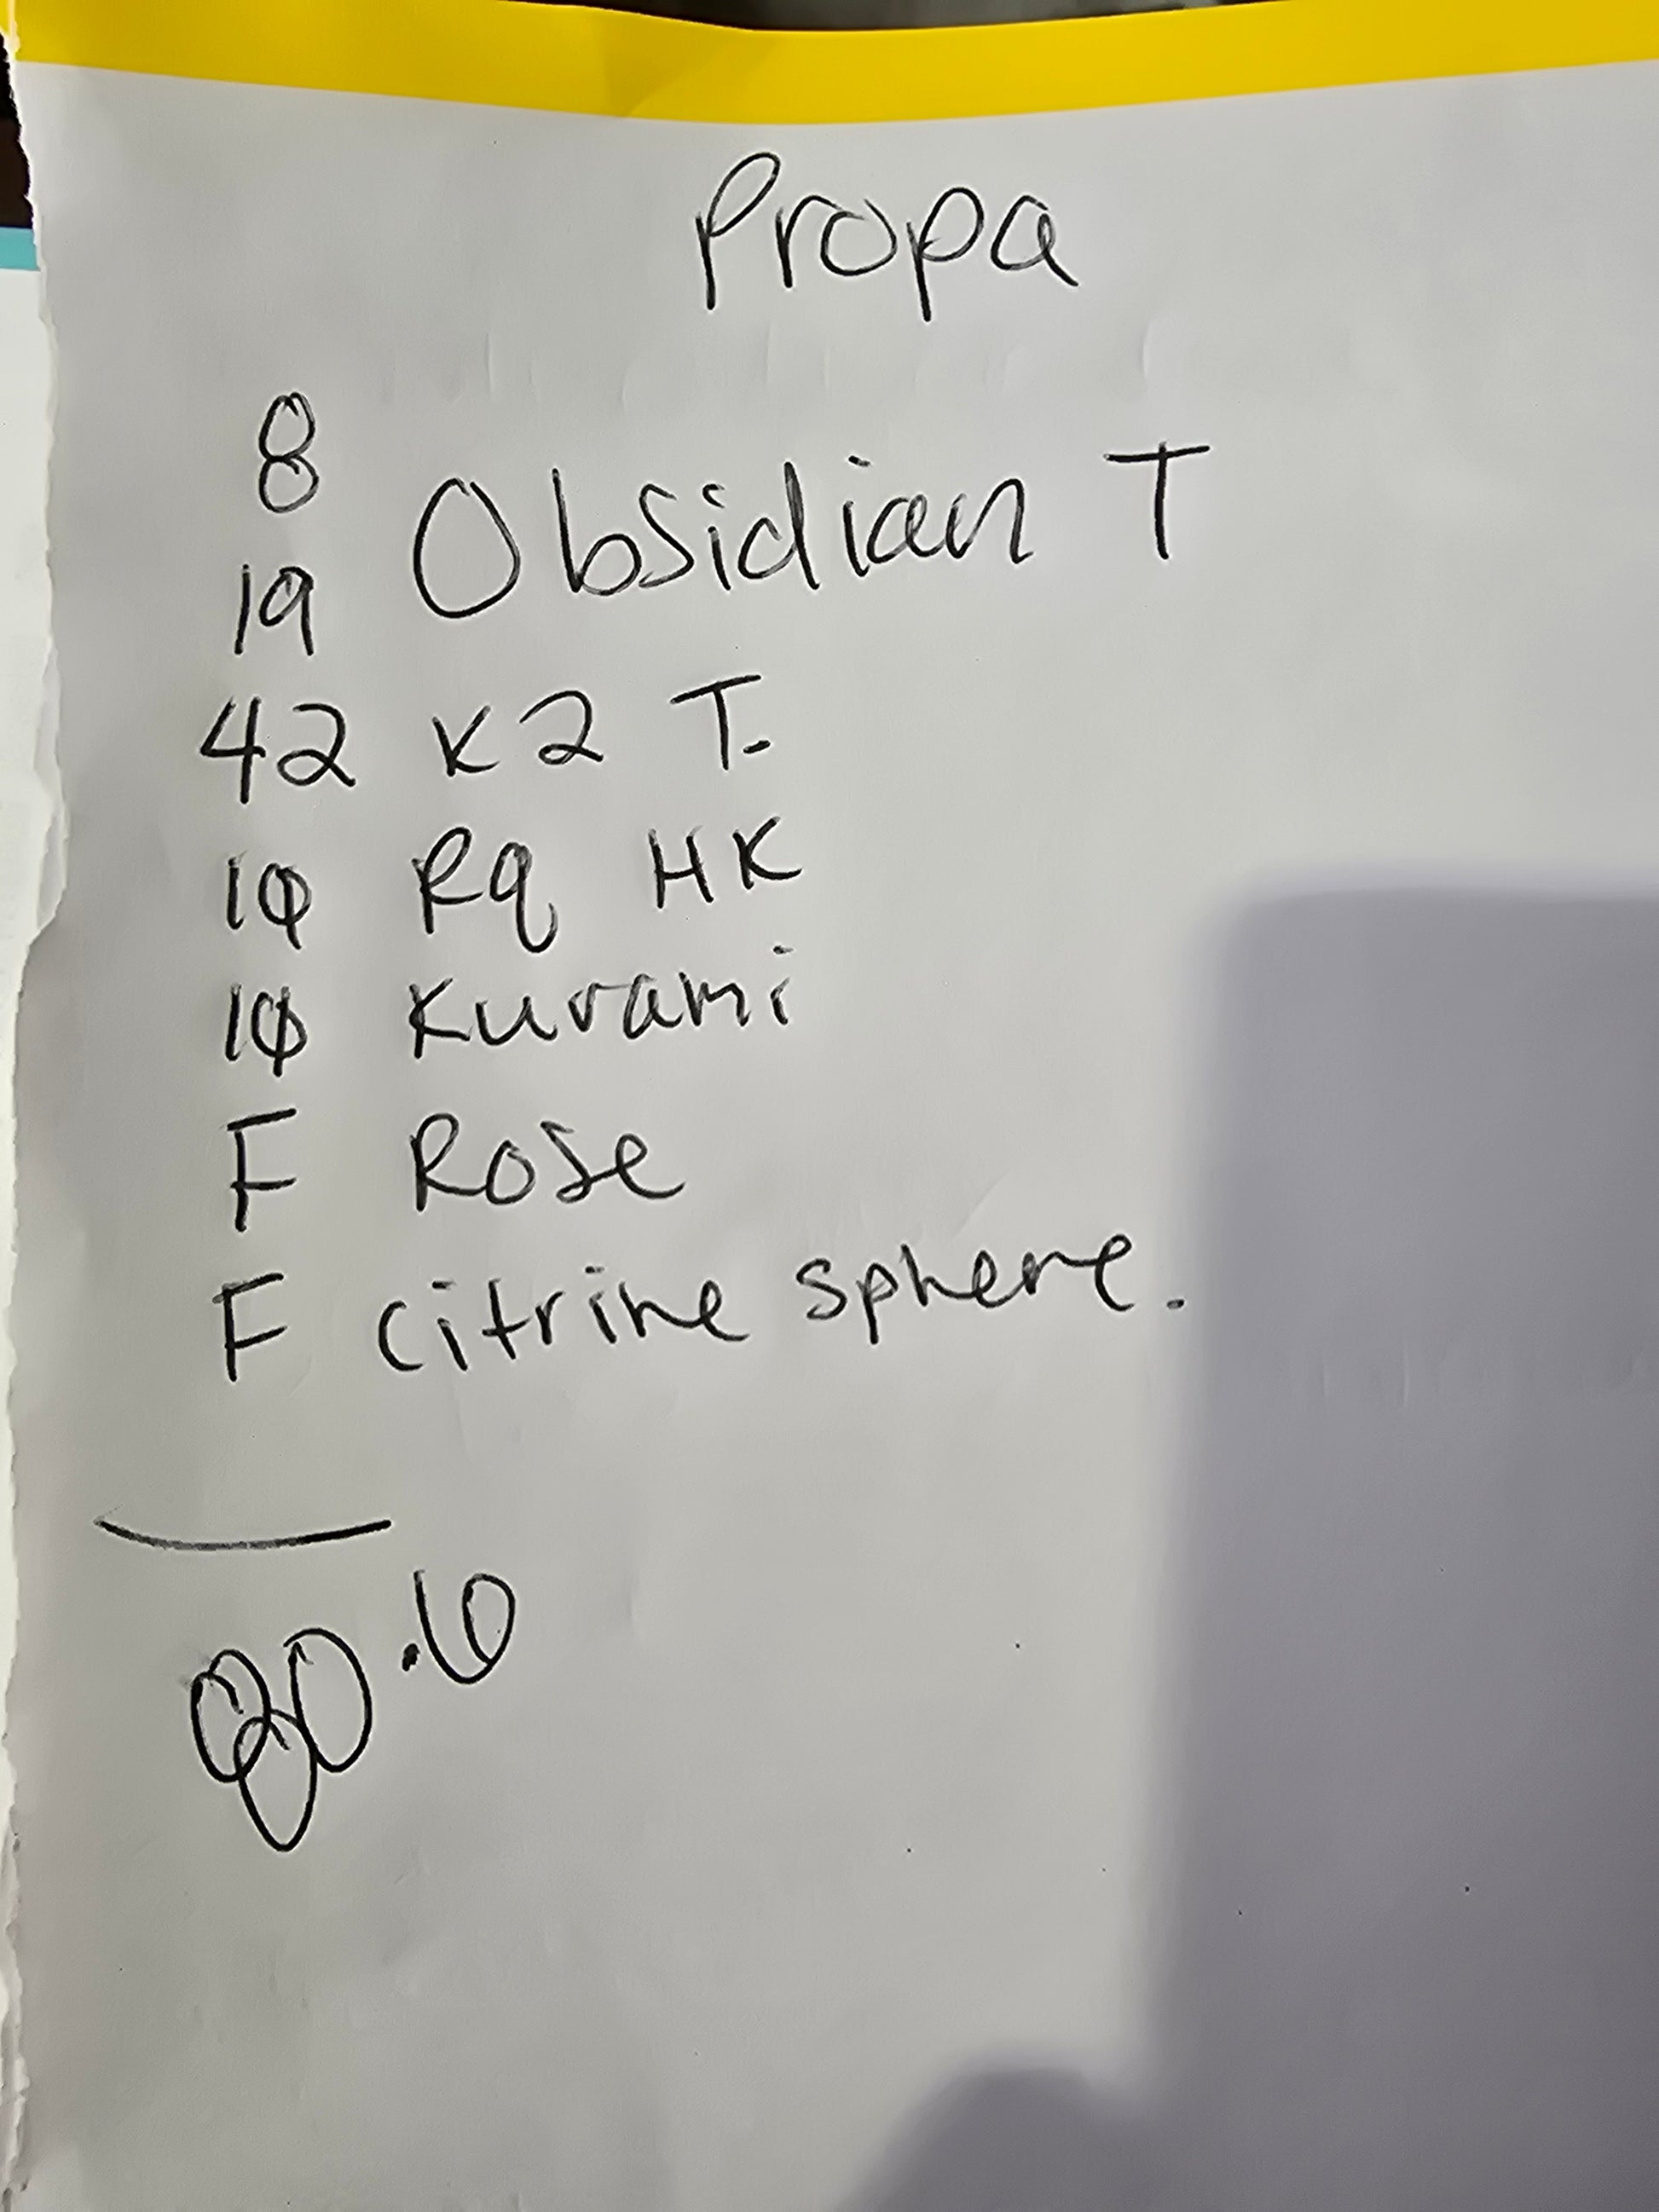 Propa
8
Obsidian T
19
42 K2 T.
10 RQ HK
10 Kurami
F Rose
F citrine sphere.
80.10